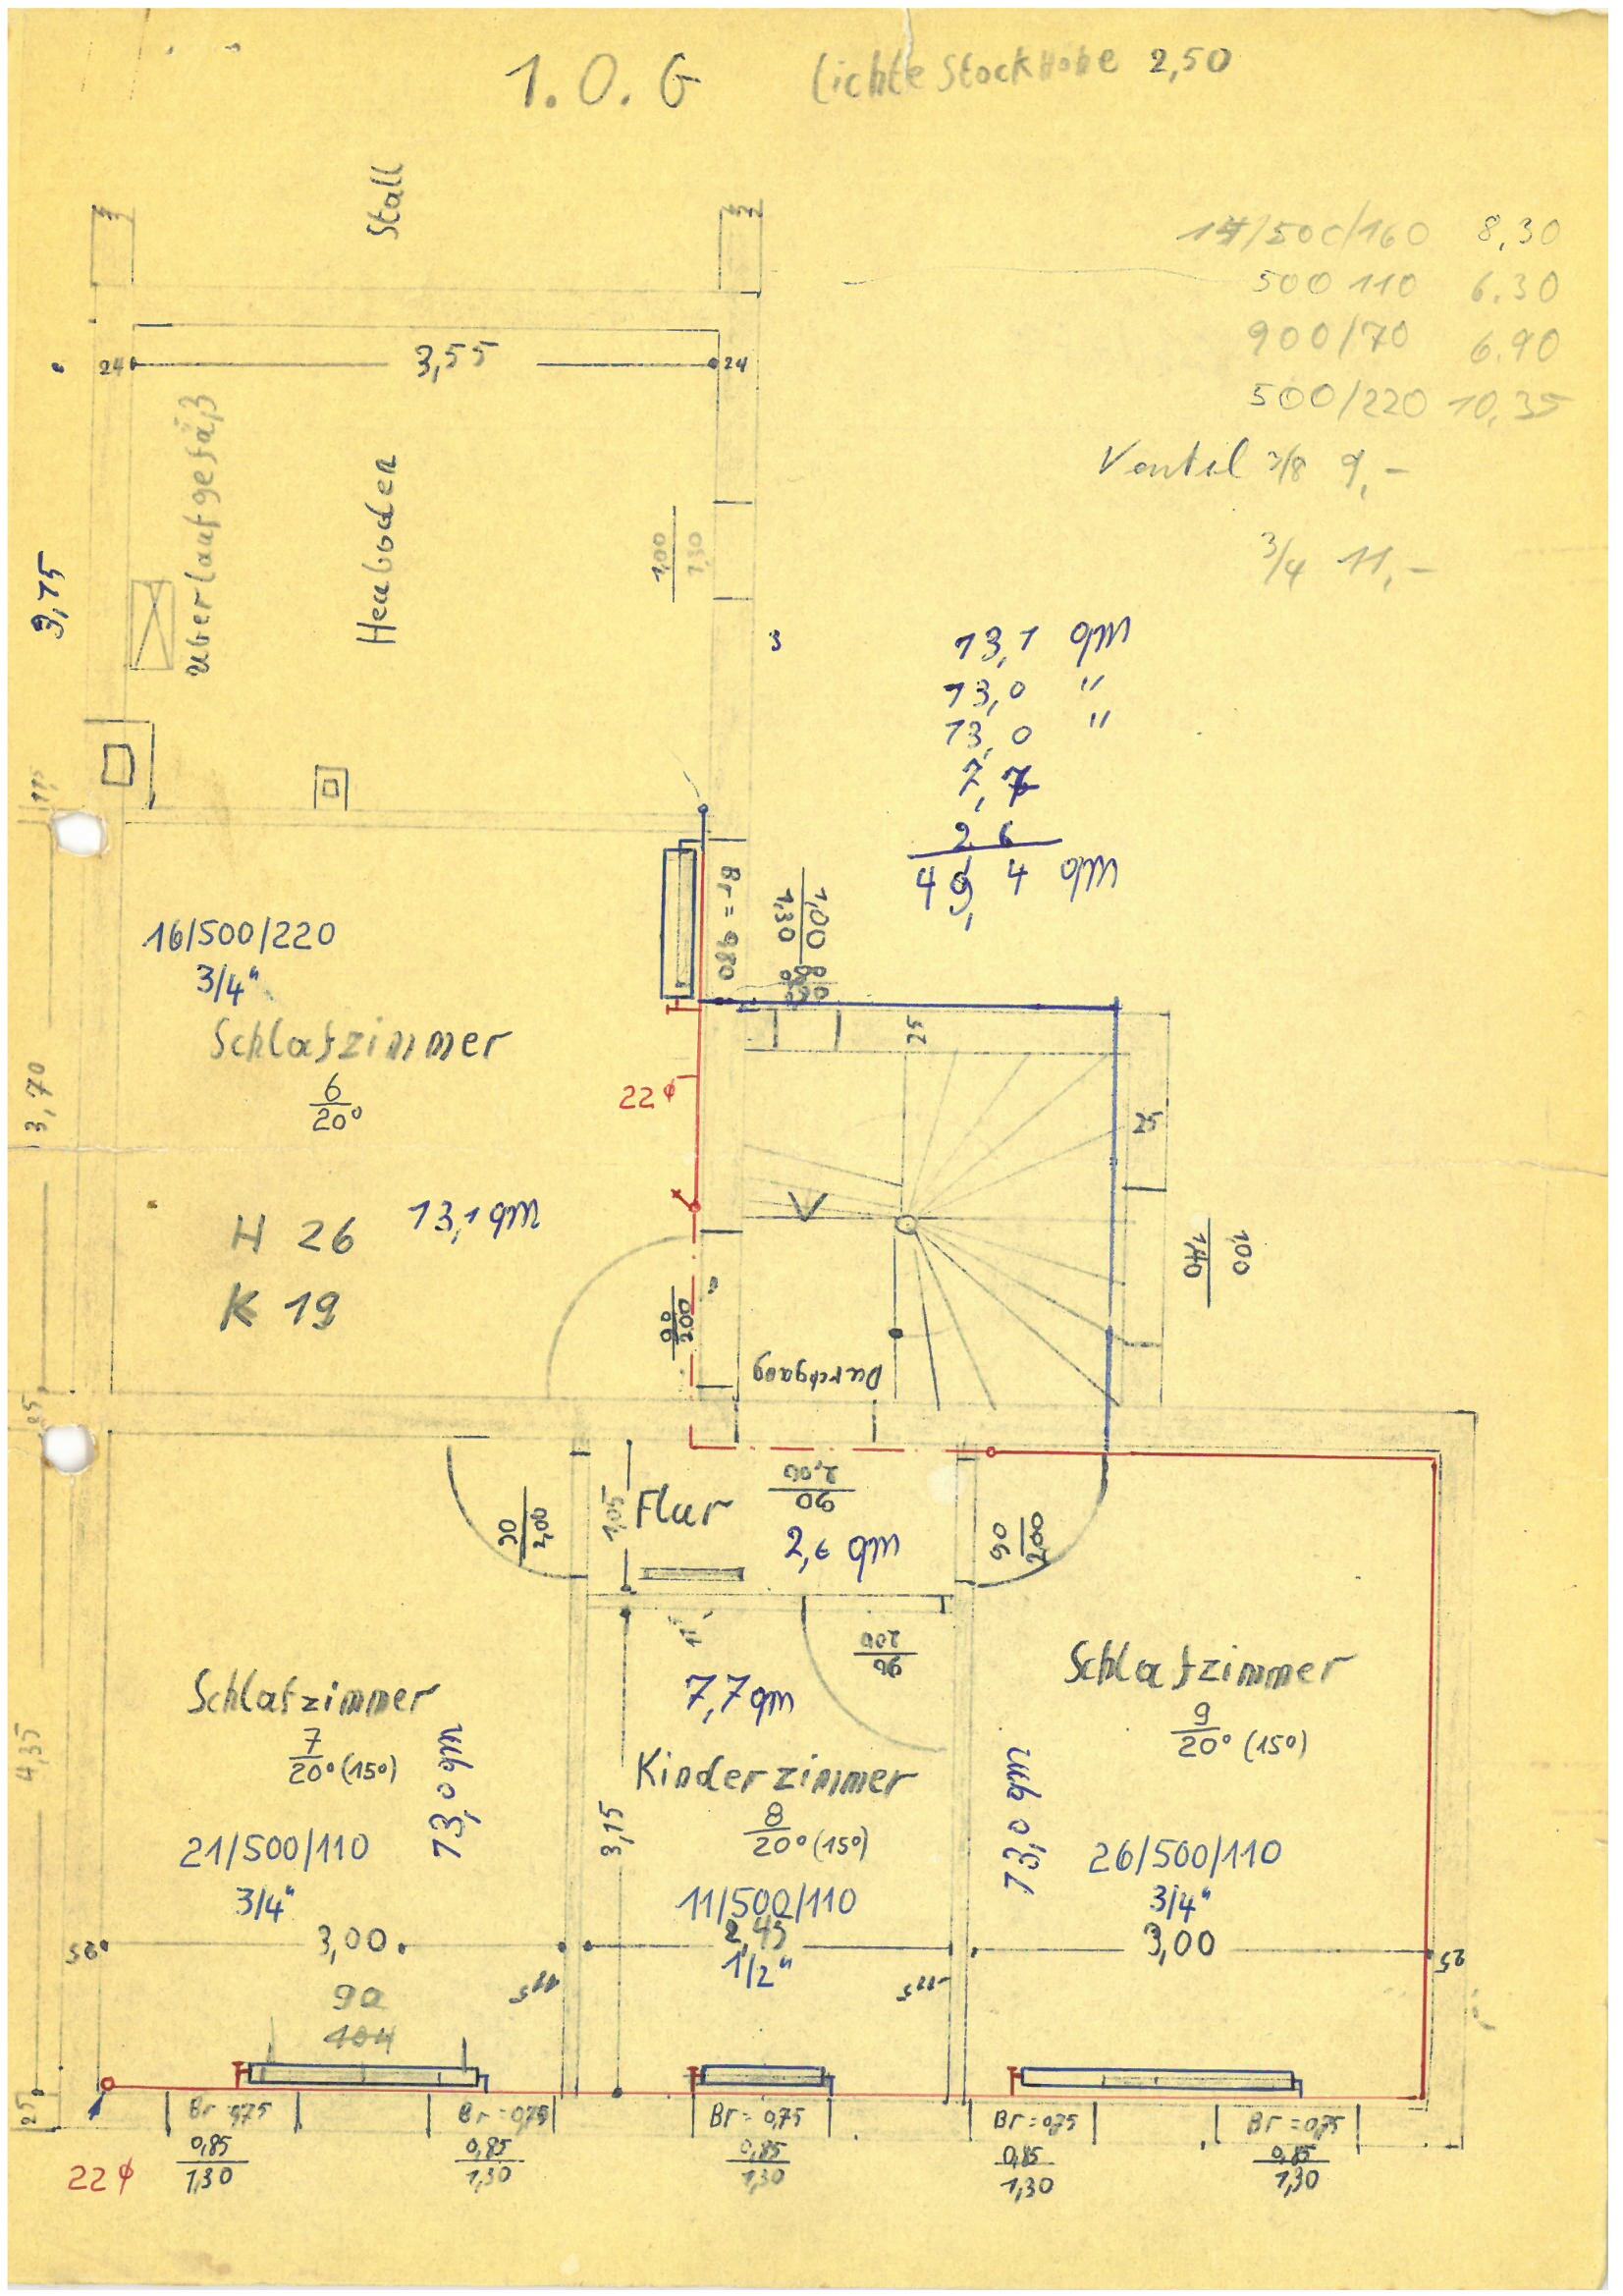 1.O.G
lichte Stockhöhe 2,50
Stall
500/160 8,30
500 110 6.30
900/70 6.90
500/220 10,35
Ventil 3/8 9,-
3/4 11,-
24
3,55
24
Überlaufgefäß
Heuboden
3,75
1,00
1,30
3
13,1 qm
13,0 "
13,0 "
7,7
2 6
49,4 qm
Br = 980
1,00
1,30
16/500/220
3/4"
Schlafzimmer
6
20°
22 ∅
3,70
25
25
H 26
13,1 qm
K 19
90
2,00
1,00
1,40
Durchgang
90
2,00
1,05
Flur
90
2,00
2,6 qm
90
2,00
90
200
7,7 qm
Schlafzimmer
7
20° (15°)
13,0 qm
4,35
Kinderzimmer
8
20° (15°)
3,15
Schlafzimmer
9
20° (15°)
13,0 qm
21/500/110
3/4"
11/500/110
2,45
1/2"
26/500/110
3/4"
25
3,00
11,5
11,5
3,00
25
90
104
25
Br=0,75
Br=0,75
Br=0,75
Br=0,75
Br=0,75
0,85
1,30
0,85
1,30
0,85
1,30
0,85
1,30
0,85
1,30
22 ∅